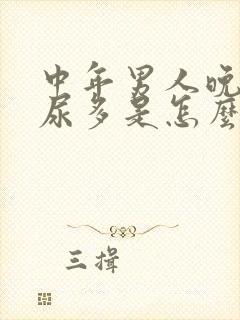 中年男人晚
尿多是怎麼
三揖